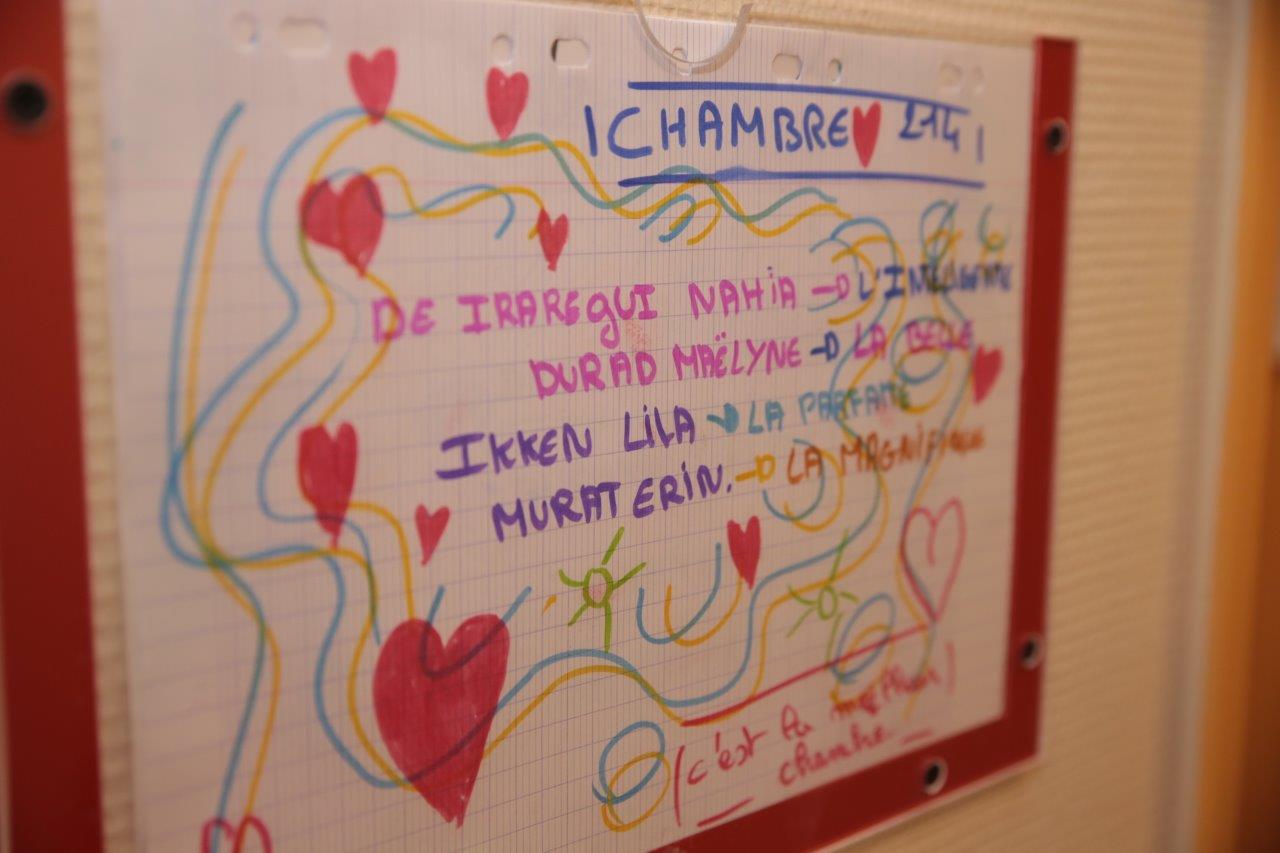 CHAMBRE 214
DE IRAREgUI NAHiA → L'INTELIGENTE
DURAD MAËLYNE → LA BELLE
IKKEN LiLA → LA PARFAITE
MURAT ERiN. → LA MAGNIFIQUE
(c'est la meilleur)
chambre